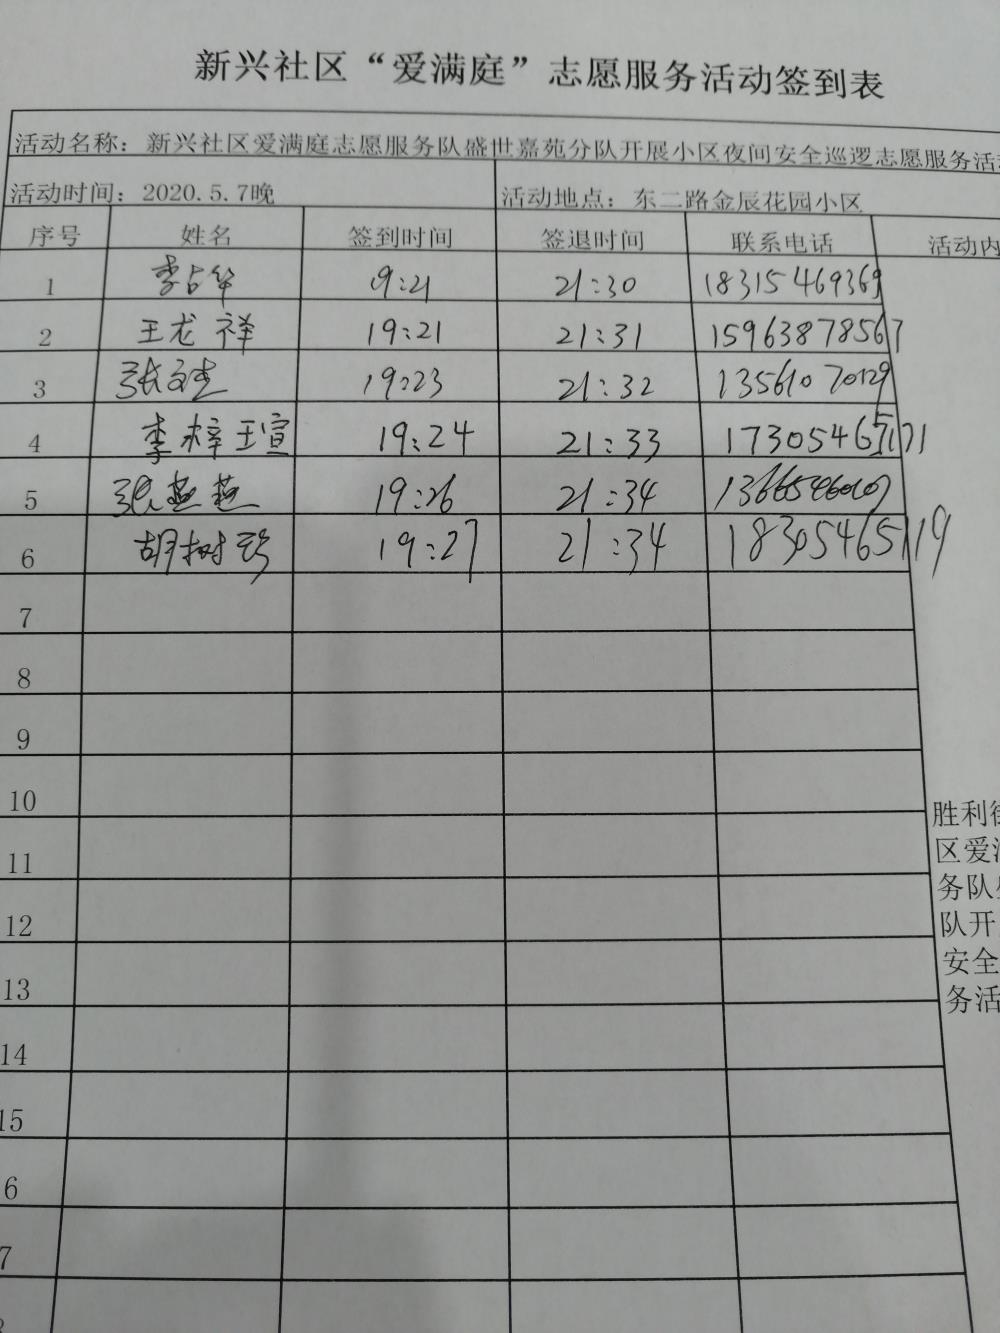 新兴社区“爱满庭”志愿服务活动签到表
活动名称：新兴社区爱满庭志愿服务队盛世嘉苑分队开展小区夜间安全巡逻志愿服务活
活动时间：2020.5.7晚 活动地点：东二路金辰花园小区
序号 姓名 签到时间 签退时间 联系电话 活动内
1 李占华 19:21 21:30 18315469369
2 王龙祥 19:21 21:31 15963878567
3 张 19:23 21:32 13561070129
4 李梓玉宣 19:24 21:33
5 张燕燕 19:26 21:34
6 胡树珍 19:27 21:34 18305465119
7
8
9
10
11
12
13
14
15
6
7
胜利街
区爱满
务队盛
队开
安全
务活